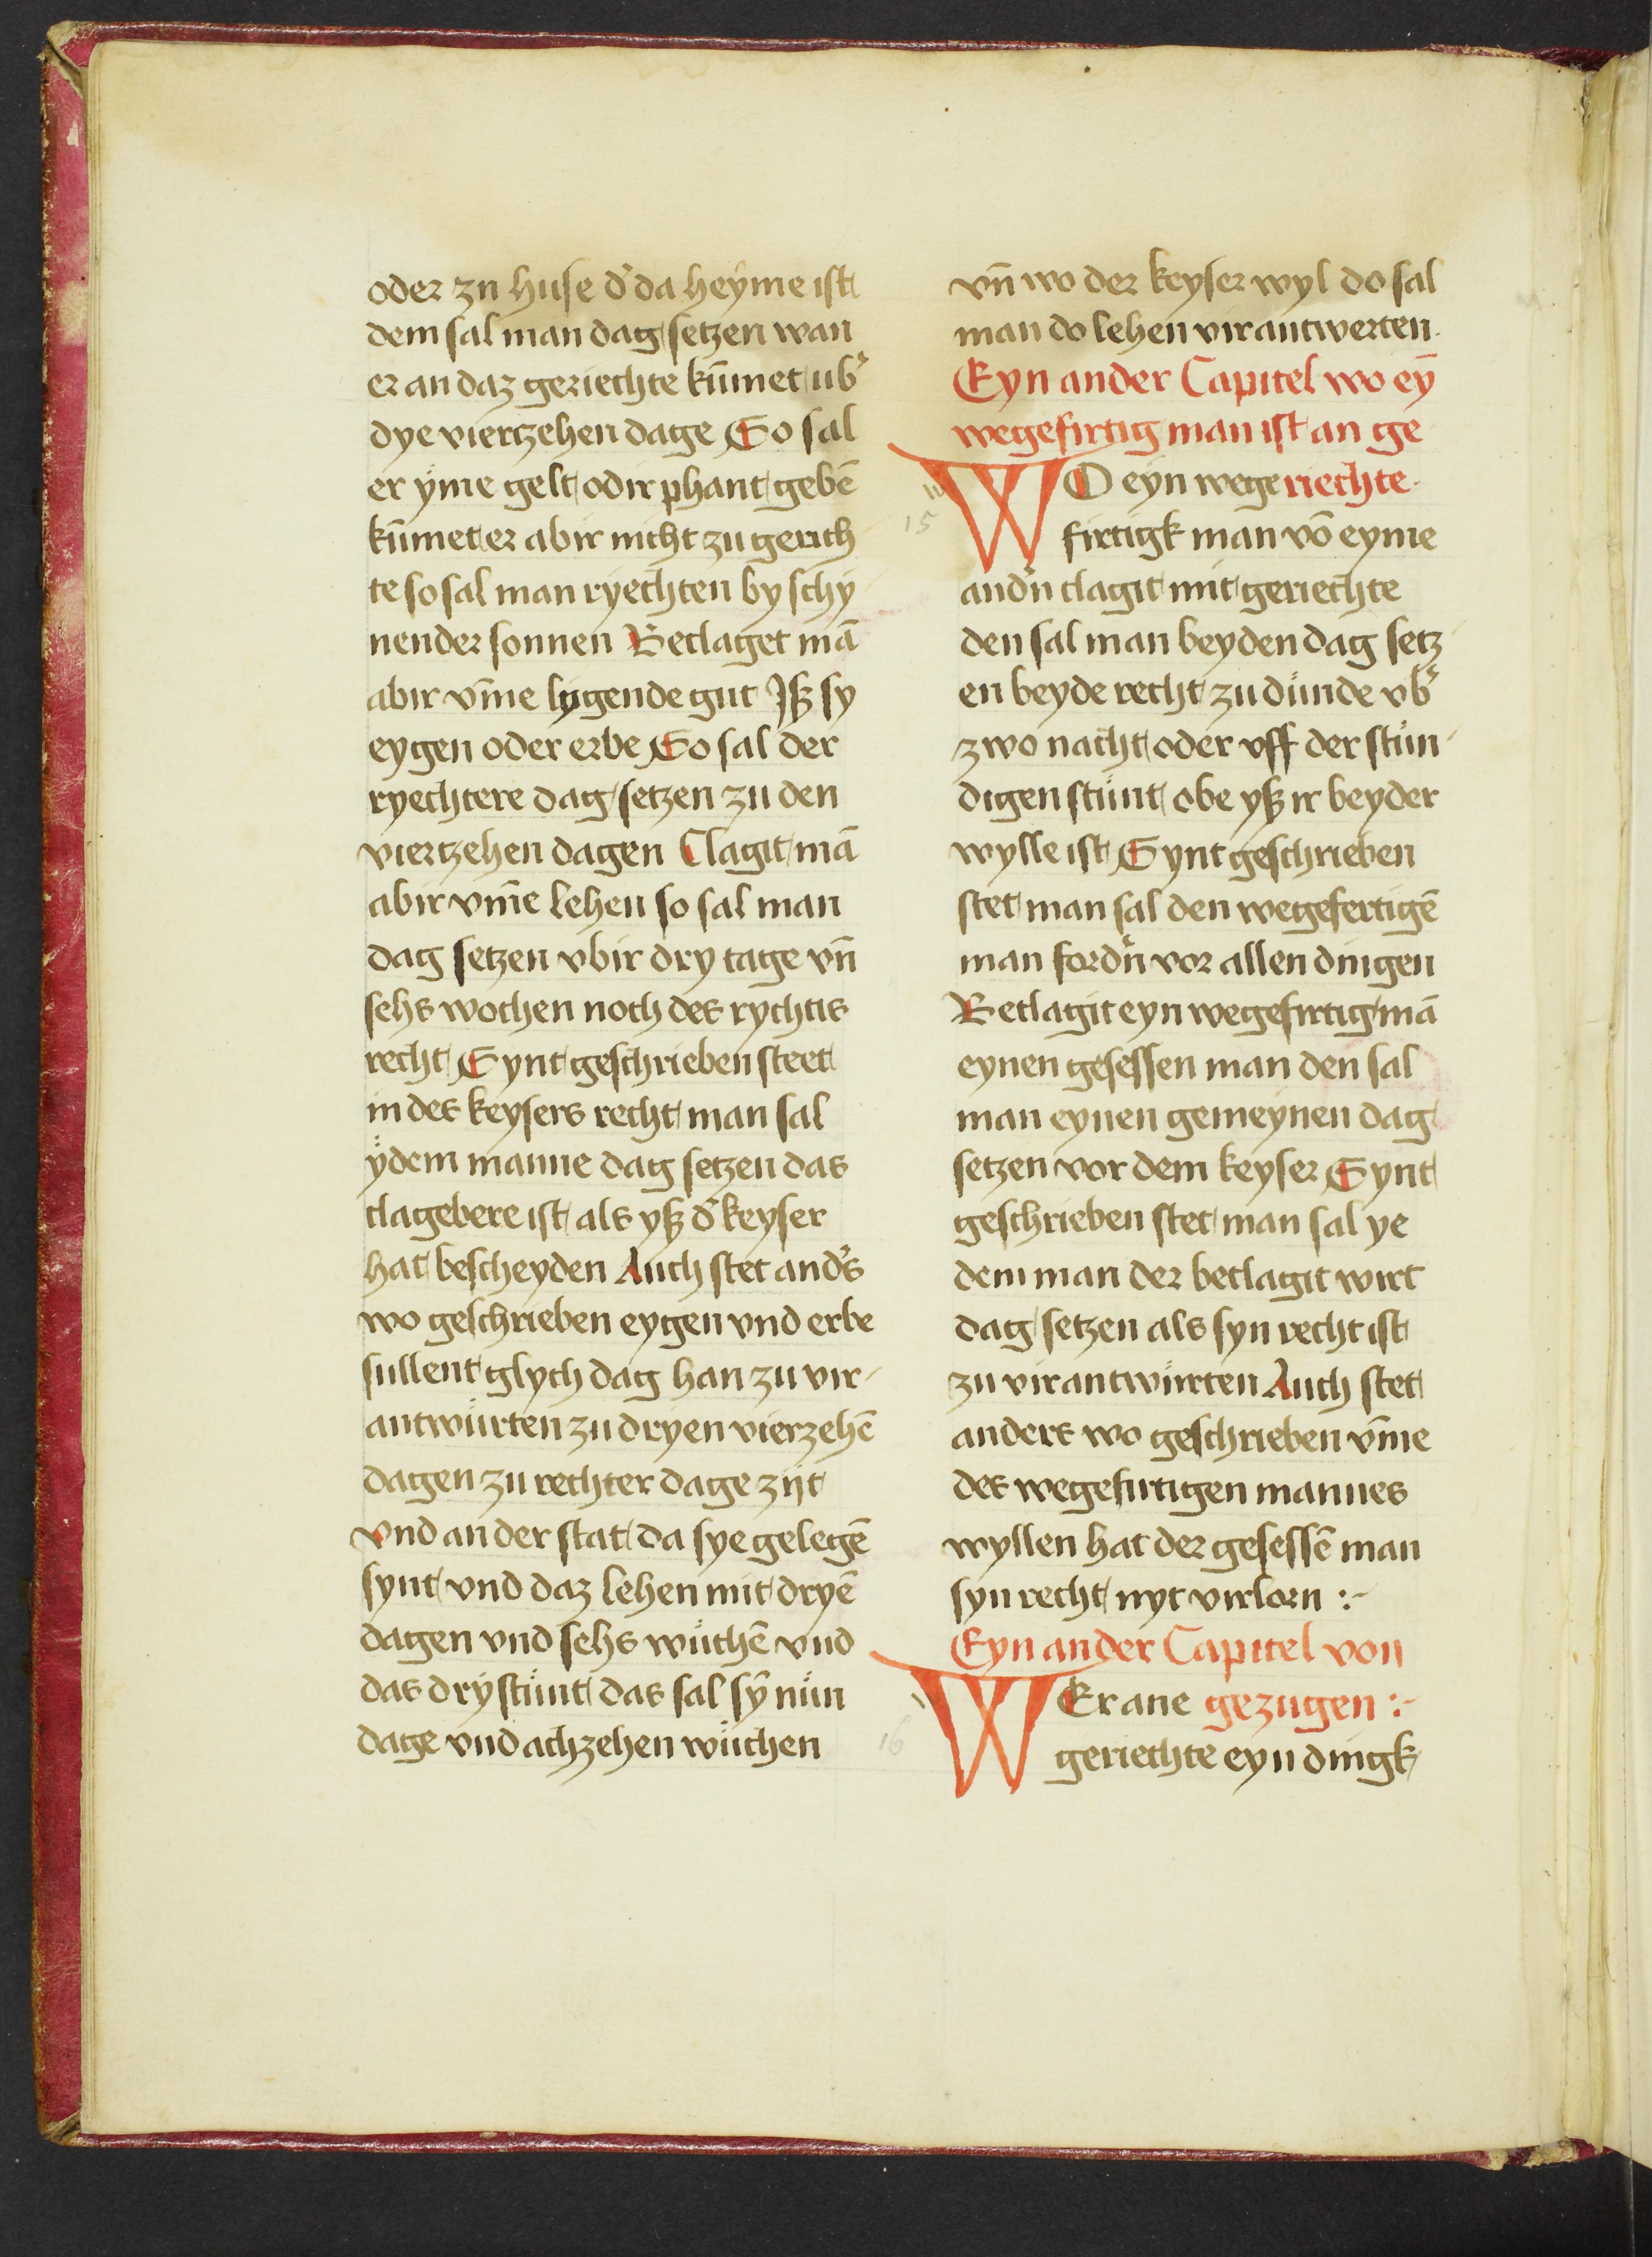 oder zu huse d᷑ da heyme ist
dem sal man dag setzen wan
er an daz geriechte kūmet ub᷑
dye viertzehen dage So sal
er yme gelt odir phant gebē
kūmet er abir nicht zu gerich
te so sal man ryechten by schy
nender sonnen Beclaget mā
abir vm̄e lygende gut Jß sy
eygen oder erbe So sal der
ryechtere dag setzen zu den
viertzehen dagen Clagit mā
abir vm̄e lehen so sal man
dag setzen vbir dry tage vn̄
sehs wochen noch des rychtis
recht Synt geschrieben steet
in des keysers recht man sal
ydem manne dag setzen das
clagebere ist als yß d᷑ keyser
hat bescheyden Auch stet and᷑s
wo geschrieben eygen vnd erbe
sullent glych dag han zu vir-
antwürten zu dryen vierzehē
dagen zu rechter dage zijt
vnd an der stat da sye gelegē
synt vnd daz lehen mit dryē
dagen vnd sehs wüchē vnd
das dry stünt das sal sȳ nün
dage vnd achzehen wüchen
vn̄ wo der keyser wyl do sal
man do lehen virantwerten.
Eyn ander Capitel wo eȳ
wegefirtig man ist an ge
15
WO eyn wege riechte.
firtigk man vō eyme
and᷑n clagit mit geriechte
den sal man beyden dag setz-
en beyde recht zu dünde vb᷑
zwo nacht oder vff der stün-
digen stünt obe yß ir beyder
wylle ist Synt geschrieben
stet man sal den wegefertigē
man ford᷑n vor allen dingen
Beclagit eyn wegefirtig mā
eynen gesessen man den sal
man eynen gemeynen dag
setzen vor dem keyser Synt
geschrieben stet man sal ye
dem man der beclagit wirt
dag setzen als syn recht ist
zu virantwürten Auch stet
anders wo geschrieben vm̄e
des wegefirtigen mannes
wyllen hat der gesessē man
syn recht nyt virlorn :-
Eyn ander Capitel von
WEr ane gezugen :-
16
geriechte eyn dingk